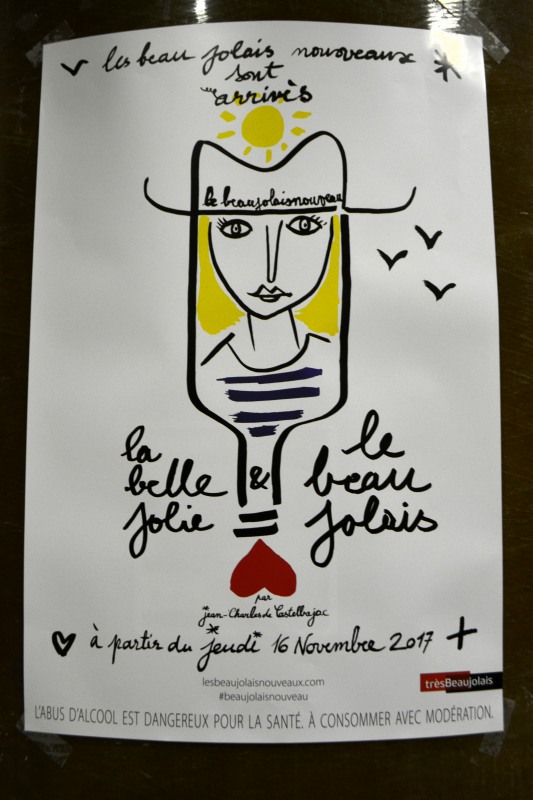 les beau jolais nouveaux
sont
arrivés
le beaujolaisnouveau
la
belle
jolie
&
le
beau
jolais
par
jean-Charles de Castelbajac
à partir du jeudi 16 Novembre 2017
lesbeaujolaisnouveaux.com
#beaujolaisnouveau
trèsBeaujolais
L'ABUS D'ALCOOL EST DANGEREUX POUR LA SANTÉ. À CONSOMMER AVEC MODÉRATION.